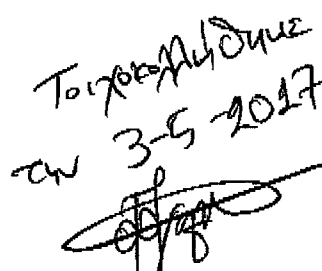 Τοιχοκολλήθηκε
την 3-5-2017